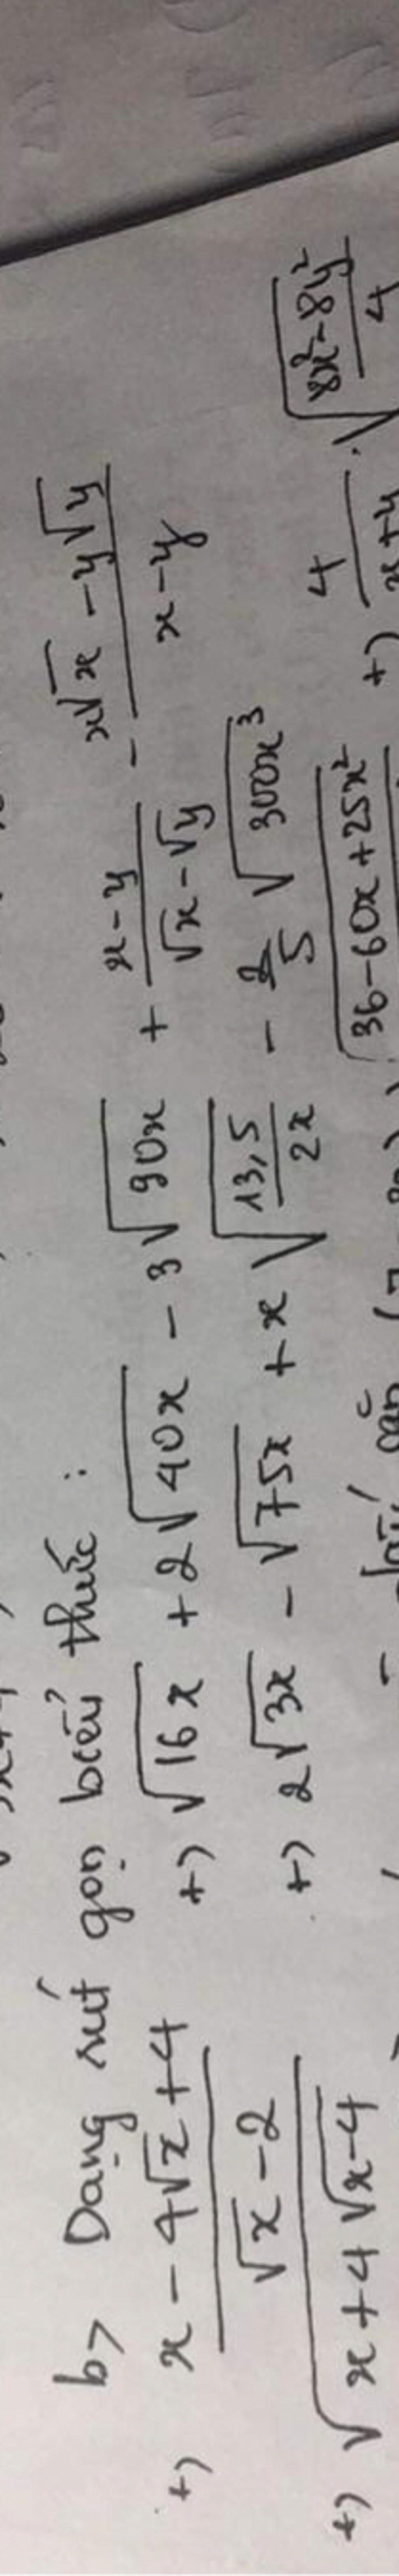 b, Dạng rút gọn biểu thức :
+) \frac{x - 4\sqrt{x} + 4}{\sqrt{x} - 2} +) \sqrt{16x} + 2\sqrt{40x} - 3\sqrt{90x} + \frac{x-y}{\sqrt{x}-\sqrt{y}} - \frac{x\sqrt{x} - y\sqrt{y}}{x-y}
+) \sqrt{x + 4\sqrt{x-4}} +) 2\sqrt{3x} - \sqrt{75x} + x\sqrt{\frac{13,5}{2x}} - \frac{2}{5}\sqrt{300x^3}
\sqrt{36-60x+25x^2} +) \frac{4}{x+y} . \sqrt{\frac{8x^2-8y^2}{4}}